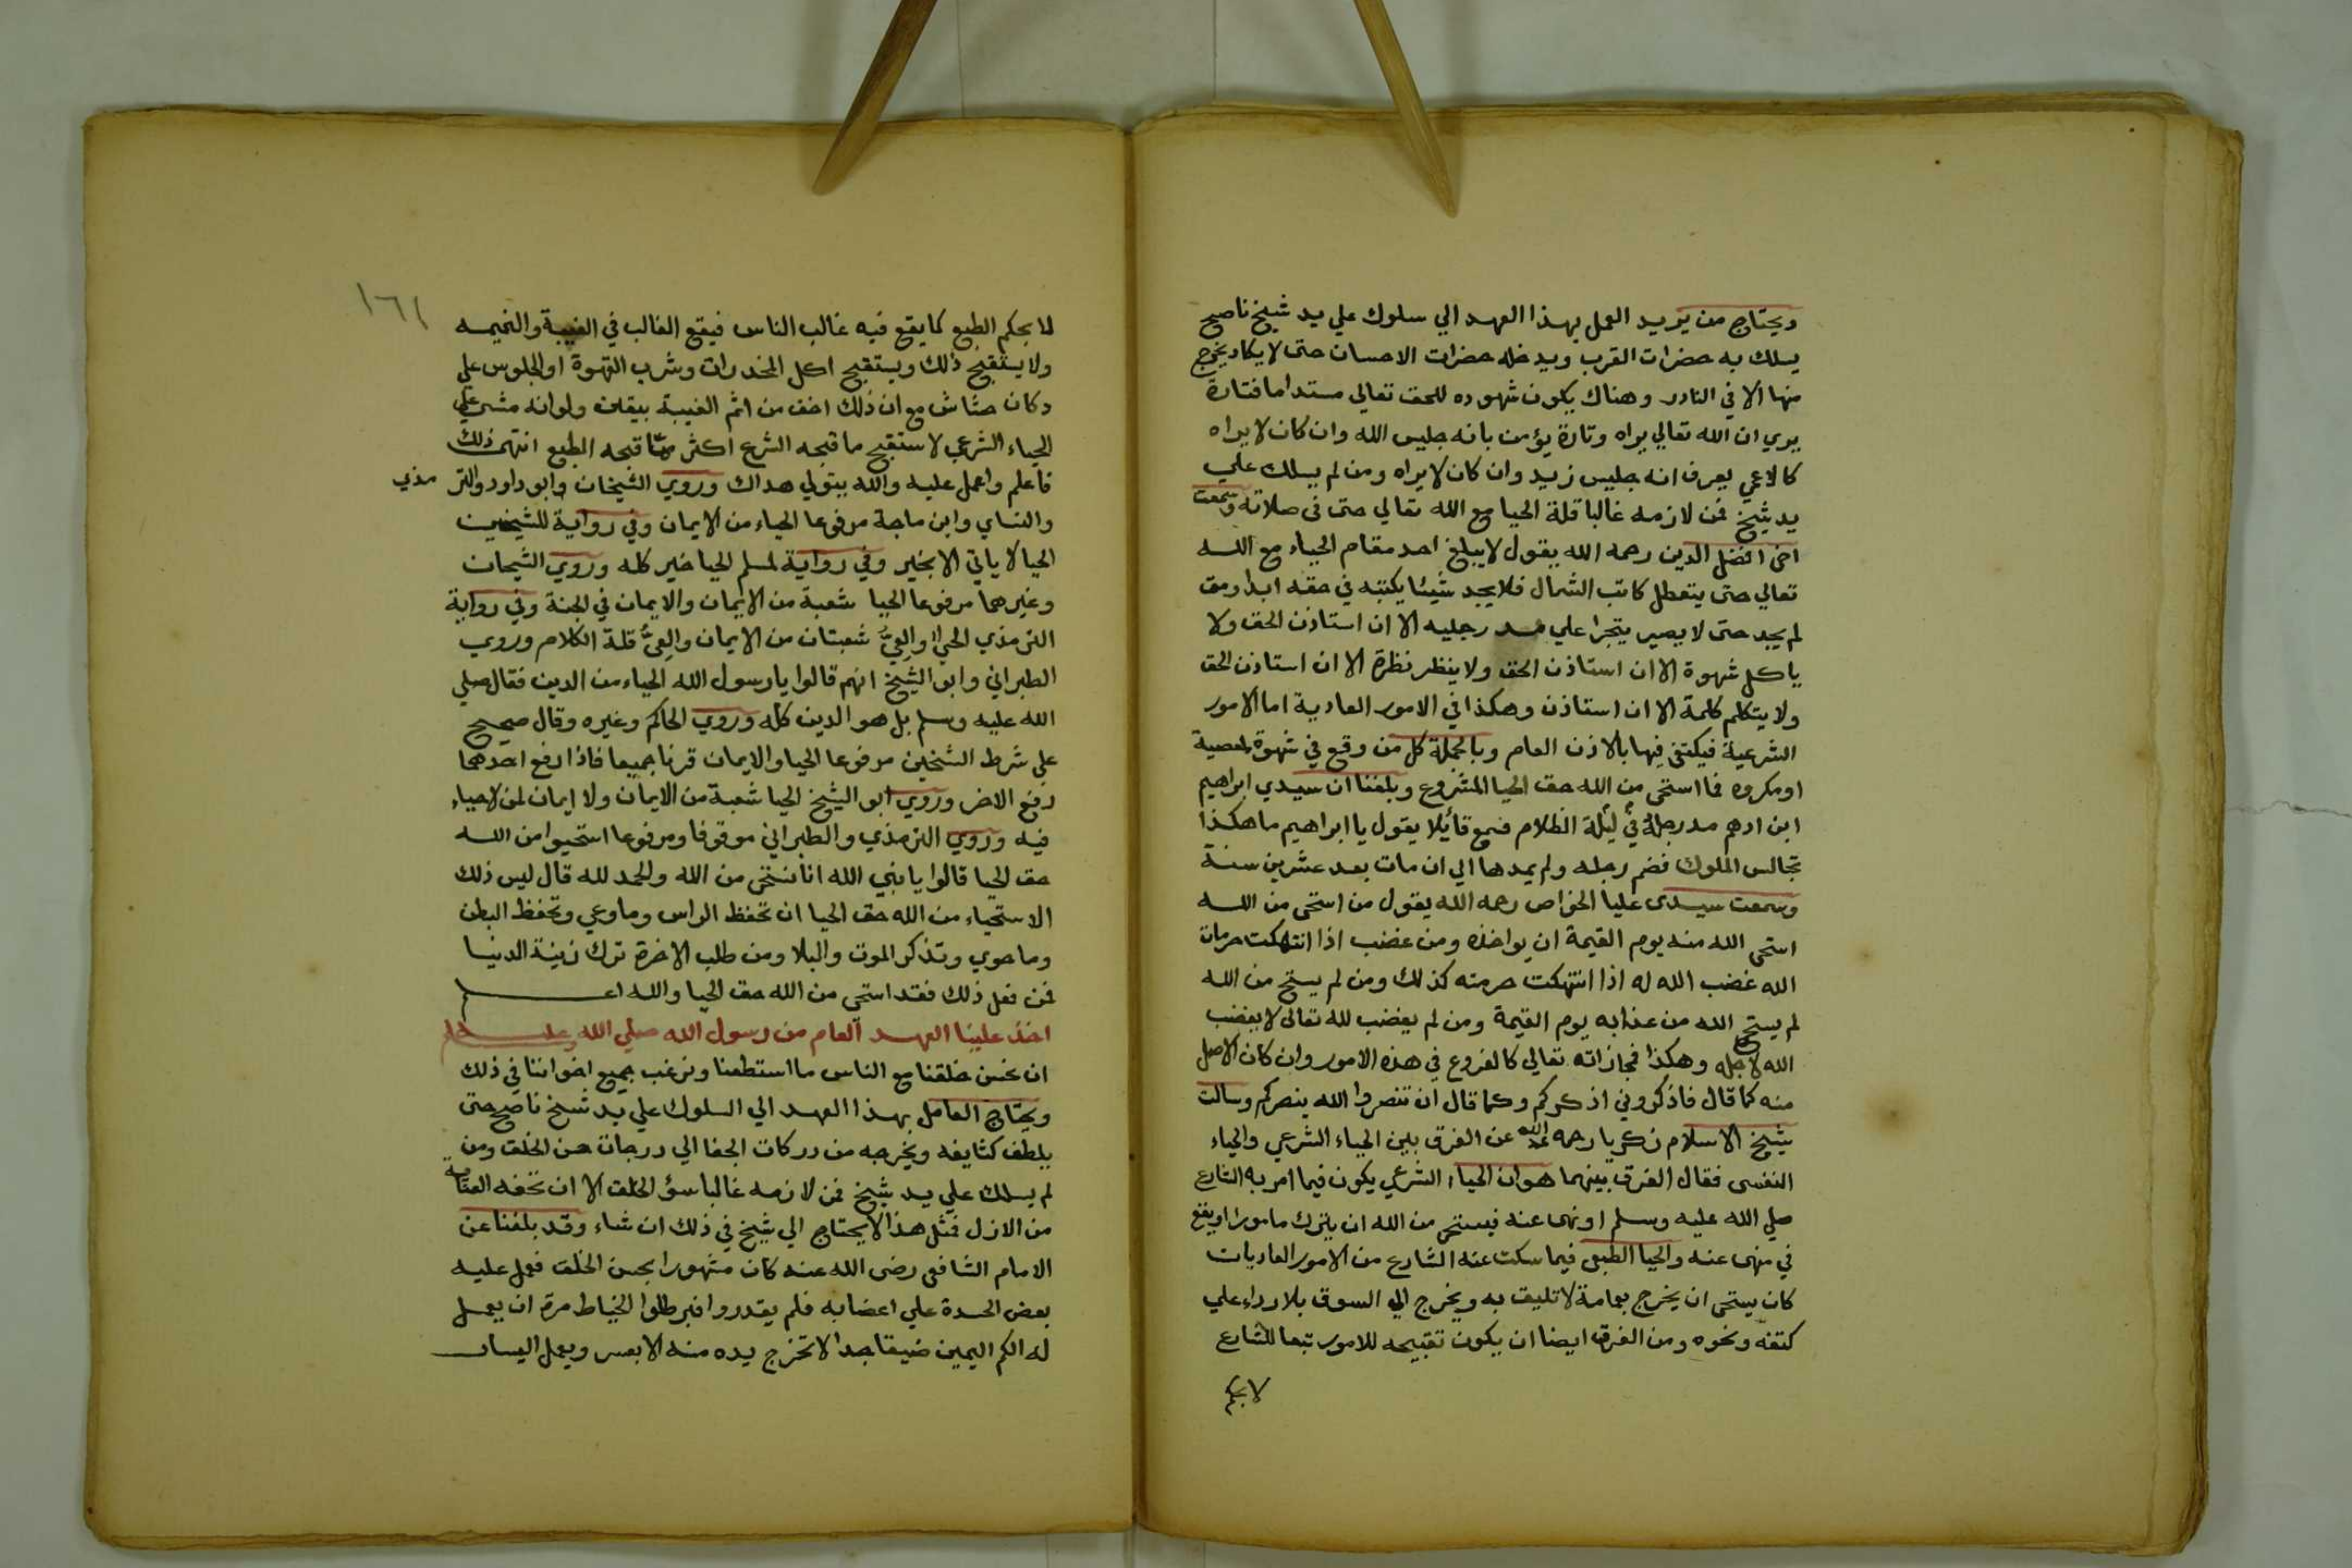 ويحتاج من يريد العمل بهذا العهد الي سلوك علي يد شيخ ناصح
يسلك به حضرات القرب ويدخله حضرات الاحسان حتى لا يكاد يخرج
منها الا في النادر وهناك يكون شهوده للحق تعالي مستداما فتارة
يري ان الله تعالي يراه وتارة يؤمن بانه جليس الله وان كان لا يراه
كالاعمي يعرف انه جليس زيد وان كان لا يراه ومن لم يسلك علي
يد شيخ فمن لازمه غالبا قلة الحيا مع الله تعالي حتى في صلاته وسمعت
اخي افضل الدين رحمه الله يقول لا يبلغ احد مقام الحياء مع الله
تعالي حتى يتعطل كاتب الشمال فلا يجد شيئا يكتبه في حقه ابدا ومتى
لم يجد حتى لا يصير يتجرا علي مد رجليه الا ان استاذن الحق ولا
ياكل شهوة الا ان استاذن الحق ولا ينظر نظرة الا ان استاذن الحق
ولا يتكلم كلمة الا ان استاذن وهكذا في الامور العادية اما الامور
الشرعية فيكتفي فيها بالاذن العام وبالجملة كل من وقع في شهوة لمعصية
او مكروه فما استحى من الله حق الحيا المشروع وبلغنا ان سيدي ابراهيم
ابن ادهم مد رجله في ليلة الظلام فسمع قائلا يقول يا ابراهيم ما هكذا
تجالس الملوك فضم رجله ولم يمدها الي ان مات بعد عشرين سنة
وسمعت سيدى عليا الخواص رحمه الله يقول من استحى من الله
استحى الله منه يوم القيمة ان يواخذه ومن غضب اذا انتهكت حرمات
الله غضب الله له اذا انتهكت حرمته كذلك ومن لم يستح من الله
لم يستح الله من عذابه يوم القيمة ومن لم يغضب لله تعالى لا يغضب
الله لاجله وهكذا فمجازاته تعالي كالفروع في هذه الامور وان كان الاصل
منه كما قال فاذكروني اذكركم وكما قال ان تنصروا الله ينصركم وسالت
شيخ الاسلام زكريا رحمه الله عن الفرق بين الحياء الشرعي والحياء
النفسى فقال الفرق بينهما هو ان الحياء الشرعي يكون فيما امر به الشارع
صلي الله عليه وسلم او نهى عنه فيستحى من الله ان يترك مامورا او يقع
في منهى عنه والحيا الطبعى فيما سكت عنه الشارع من الامور العاديات
كان يستحى ان يخرج بعمامة لا تليق به ويخرج الي السوق بلا رداء علي
كتفه ونحوه ومن الفرق ايضا ان يكون تقبيحه للامور تبعا للشارع
لا بحكم
١٦١
لما بحكم الطبع كما يقع فيه غالب الناس فيقع الغالب في الغيبة والنميمه
ولا يستقبح ذلك ويستقبح اكل المخدرات وشرب القهوة او الجلوس علي
دكان حشاش مع ان ذلك اخف من اثم الغيبة بيقين ولو انه مشى علي
الحياء الشرعي لاستقبح ما قبحه الشرع اكثر مما قبحه الطبع انتهى ذلك
فاعلم واعمل عليه والله يتولي هداك وروي الشيخان وابو داود والترمذي
والنساي وابن ماجة مرفوعا الحياء من الايمان وفي رواية للشيخين
الحيا لا ياتي الا بخير وفي رواية لمسلم الحيا خير كله وروي الشيخان
وغيرهما مرفوعا الحيا شعبة من الايمان والايمان في الجنة وفي رواية
الترمذي الحيا والعيّ شعبتان من الايمان والعيّ قلة الكلام وروي
الطبراني وابو الشيخ انهم قالوا يا رسول الله الحياء من الدين فقال صلي
الله عليه وسلم بل هو الدين كله وروي الحاكم وغيره وقال صحيح
علي شرط الشخين مرفوعا الحيا والايمان قرنا جميعا فاذا رفع احدهما
رفع الاخر وروي ابو الشيخ الحيا شعبة من الايمان ولا إيمان لمن لا حياء
فيه وروي الترمذي والطبراني موقوفا ومرفوعا استحيوا من الله
حق الحيا قالوا يا نبي الله انا نستحى من الله والحمد لله قال ليس ذلك
الاستحياء من الله حق الحيا ان تحفظ الراس وما وعي وتحفظ البطن
وما حوي وتذكر الموت والبلا ومن طلب الاخرة ترك زينة الدنيا
فمن فعل ذلك فقد استحى من الله حق الحيا والله اعلم
اخذ علينا العهد العام من رسول الله صلي الله عليه وسلم
ان نحسن خلقنا مع الناس ما استطعنا ونرغب جميع اخواننا في ذلك
ويحتاج العامل بهذا العهد الي السلوك علي يد شيخ ناصح حتى
يلطف كثايفه ويخرجه من دركات الجفا الي درجات حسن الخلق ومن
لم يسلك علي يد شيخ فمن لازمه غالبا سؤ الخلق الا ان تحفه العناية
من الازل فمثل هذا لا يحتاج الي شيخ في ذلك ان شاء وقد بلغنا عن
الامام الشافعى رضى الله عنه كان مشهورا بحسن الخلق فعمل عليه
بعض الحسدة علي اغضابه فلم يقدروا فبرطلوا الخياط مرة ان يعمل
له الكم اليمين ضيقا جدا لا تخرج يده منه الا بعسر ويعمل اليسار